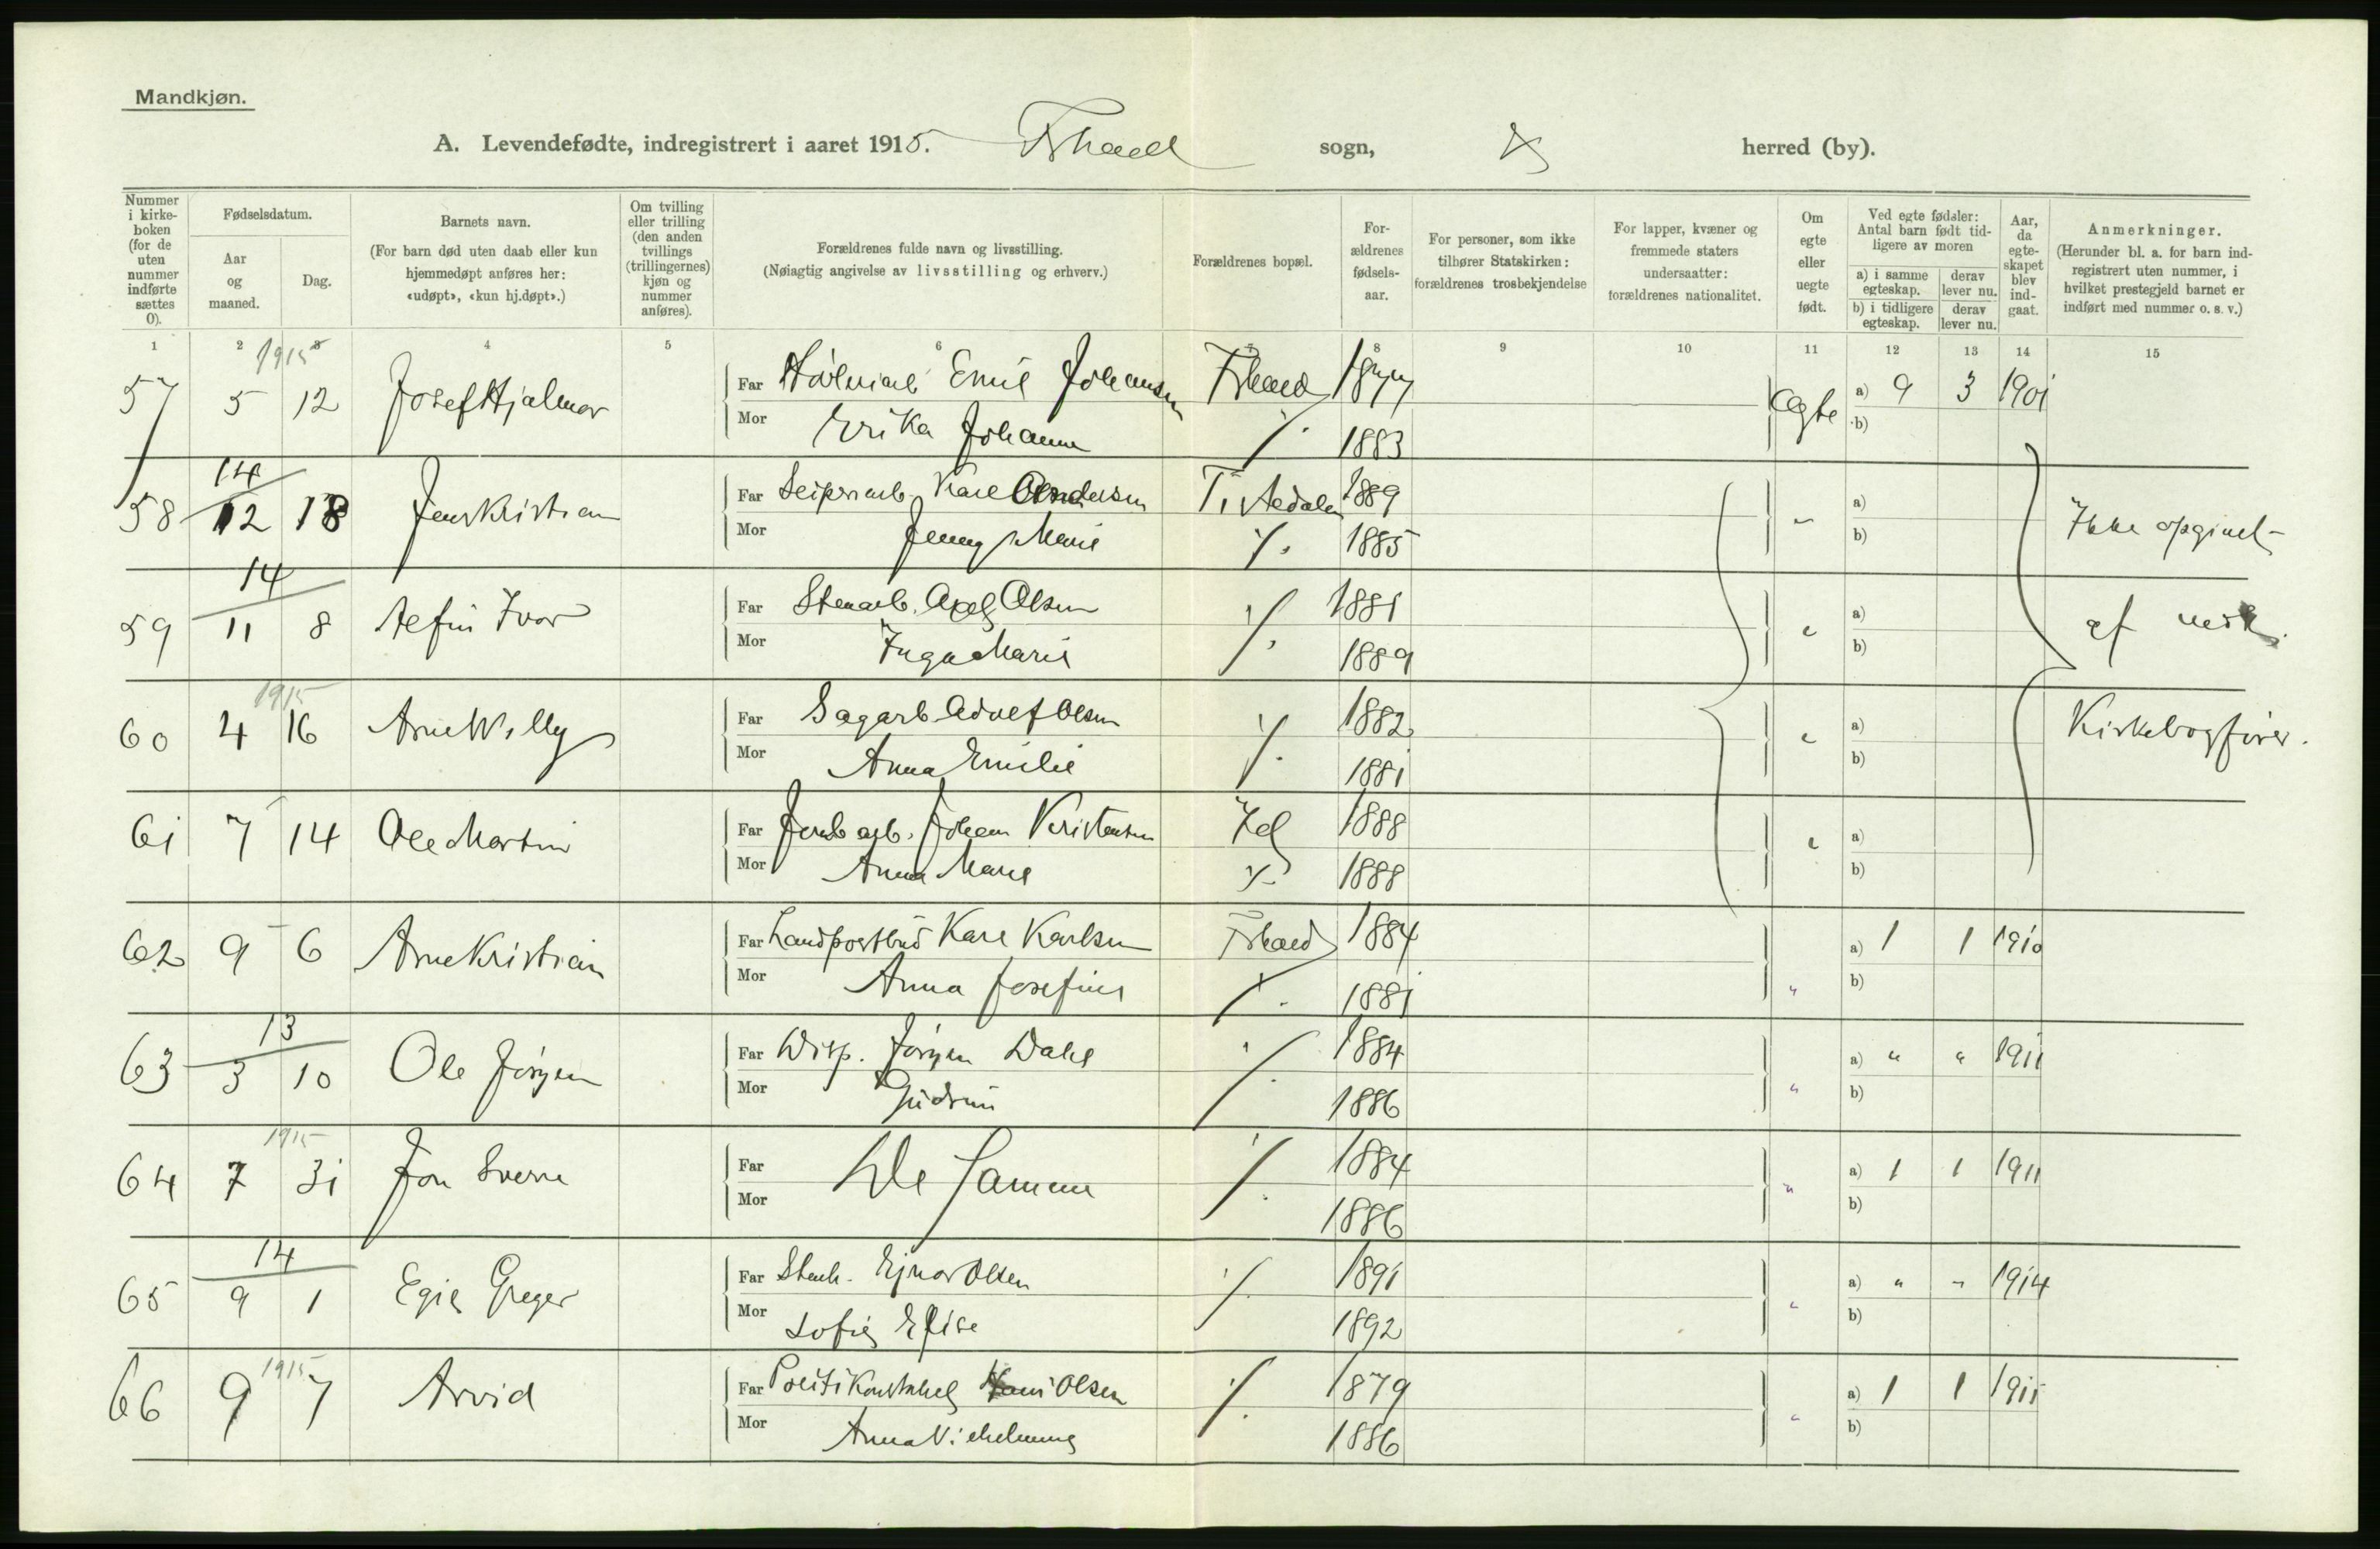 Mandkjøn.
A. Levendefødte, indregistrert i aaret 1915. sogn, herred (by).
Nummer i kirkeboken (for de uten nummer indførte sættes 0).
Fødselsdatum.
Aar og maaned.
Dag.
Barnets navn.
(For barn død uten daab eller kun hjemmedøpt anføres her: «udøpt», «kun hj.døpt».)
Om tvilling eller trilling (den anden tvillings (trillingernes) kjøn og nummer anføres).
Forældrenes fulde navn og livsstilling.
(Nøiagtig angivelse av livsstilling og erhverv.)
Forældrenes bopæl.
Forældrenes fødselsaar.
For personer, som ikke tilhører Statskirken: forældrenes trosbekjendelse
For lapper, kvæner og fremmede staters undersaatter: forældrenes nationalitet.
Om egte eller uegte født.
Ved egte fødsler: Antal barn født tidligere av moren
a) i samme egteskap. derav lever nu.
b) i tidligere egteskap. derav lever nu.
Aar, da egteskapet blev indgaat.
Anmerkninger.
(Herunder bl. a. for barn indregistrert uten nummer, i hvilket prestegjeld barnet er indført med nummer o. s. v.)
1 2 3 4 5 6 7 8 9 10 11 12 13 14 15
1915
57 5 12 Josef Hjalmar Far Emil Johansen 1877 Egte a) 9 3 1901
Mor Erika Johanne ·/· 1883 b)
14
58 12 18 Jens Kristian Far Karl Andersen Tistedalen 1889 " a) Ikke opgivet
Mor Jenny Marie ·/· 1885 b)
14
59 11 8 Ivar Far Stenarb. Axel Olsen ·/· 1881 " a) af
Mor Inga Marie 1889 b)
1915
60 4 16 Arne Willy Far Sagarb. Adolf Olsen ·/· 1882 " a) Kirkebogfører.
Mor Anna Emilie 1881 b)
61 7 14 Ole Martin Far Johan Kristensen Id 1888 " a)
Mor Anna Marie ·/· 1888 b)
62 9 6 Arne Kristian Far Landpostbud Karl Karlsen 1884 " a) 1 1 1910
Mor Anna Josefine ·/· 1881 b)
13
63 3 10 Ole Jørgen Far Disp. Jørgen Dahl ·/· 1884 " a) " " 1911
Mor Gudrun 1886 b)
1915
64 7 31 Jon Sverre Far De samme ·/· 1884 " a) 1 1 1911
Mor 1886 b)
14
65 9 1 Egil Greger Far Ejnar Olsen ·/· 1891 " a) " " 1914
Mor Sofie Elise 1892 b)
1915
66 9 7 Arvid Far Politikonstabel Olsen ·/· 1879 " a) 1 1 1911
Mor Anna Vilhelmine 1886 b)